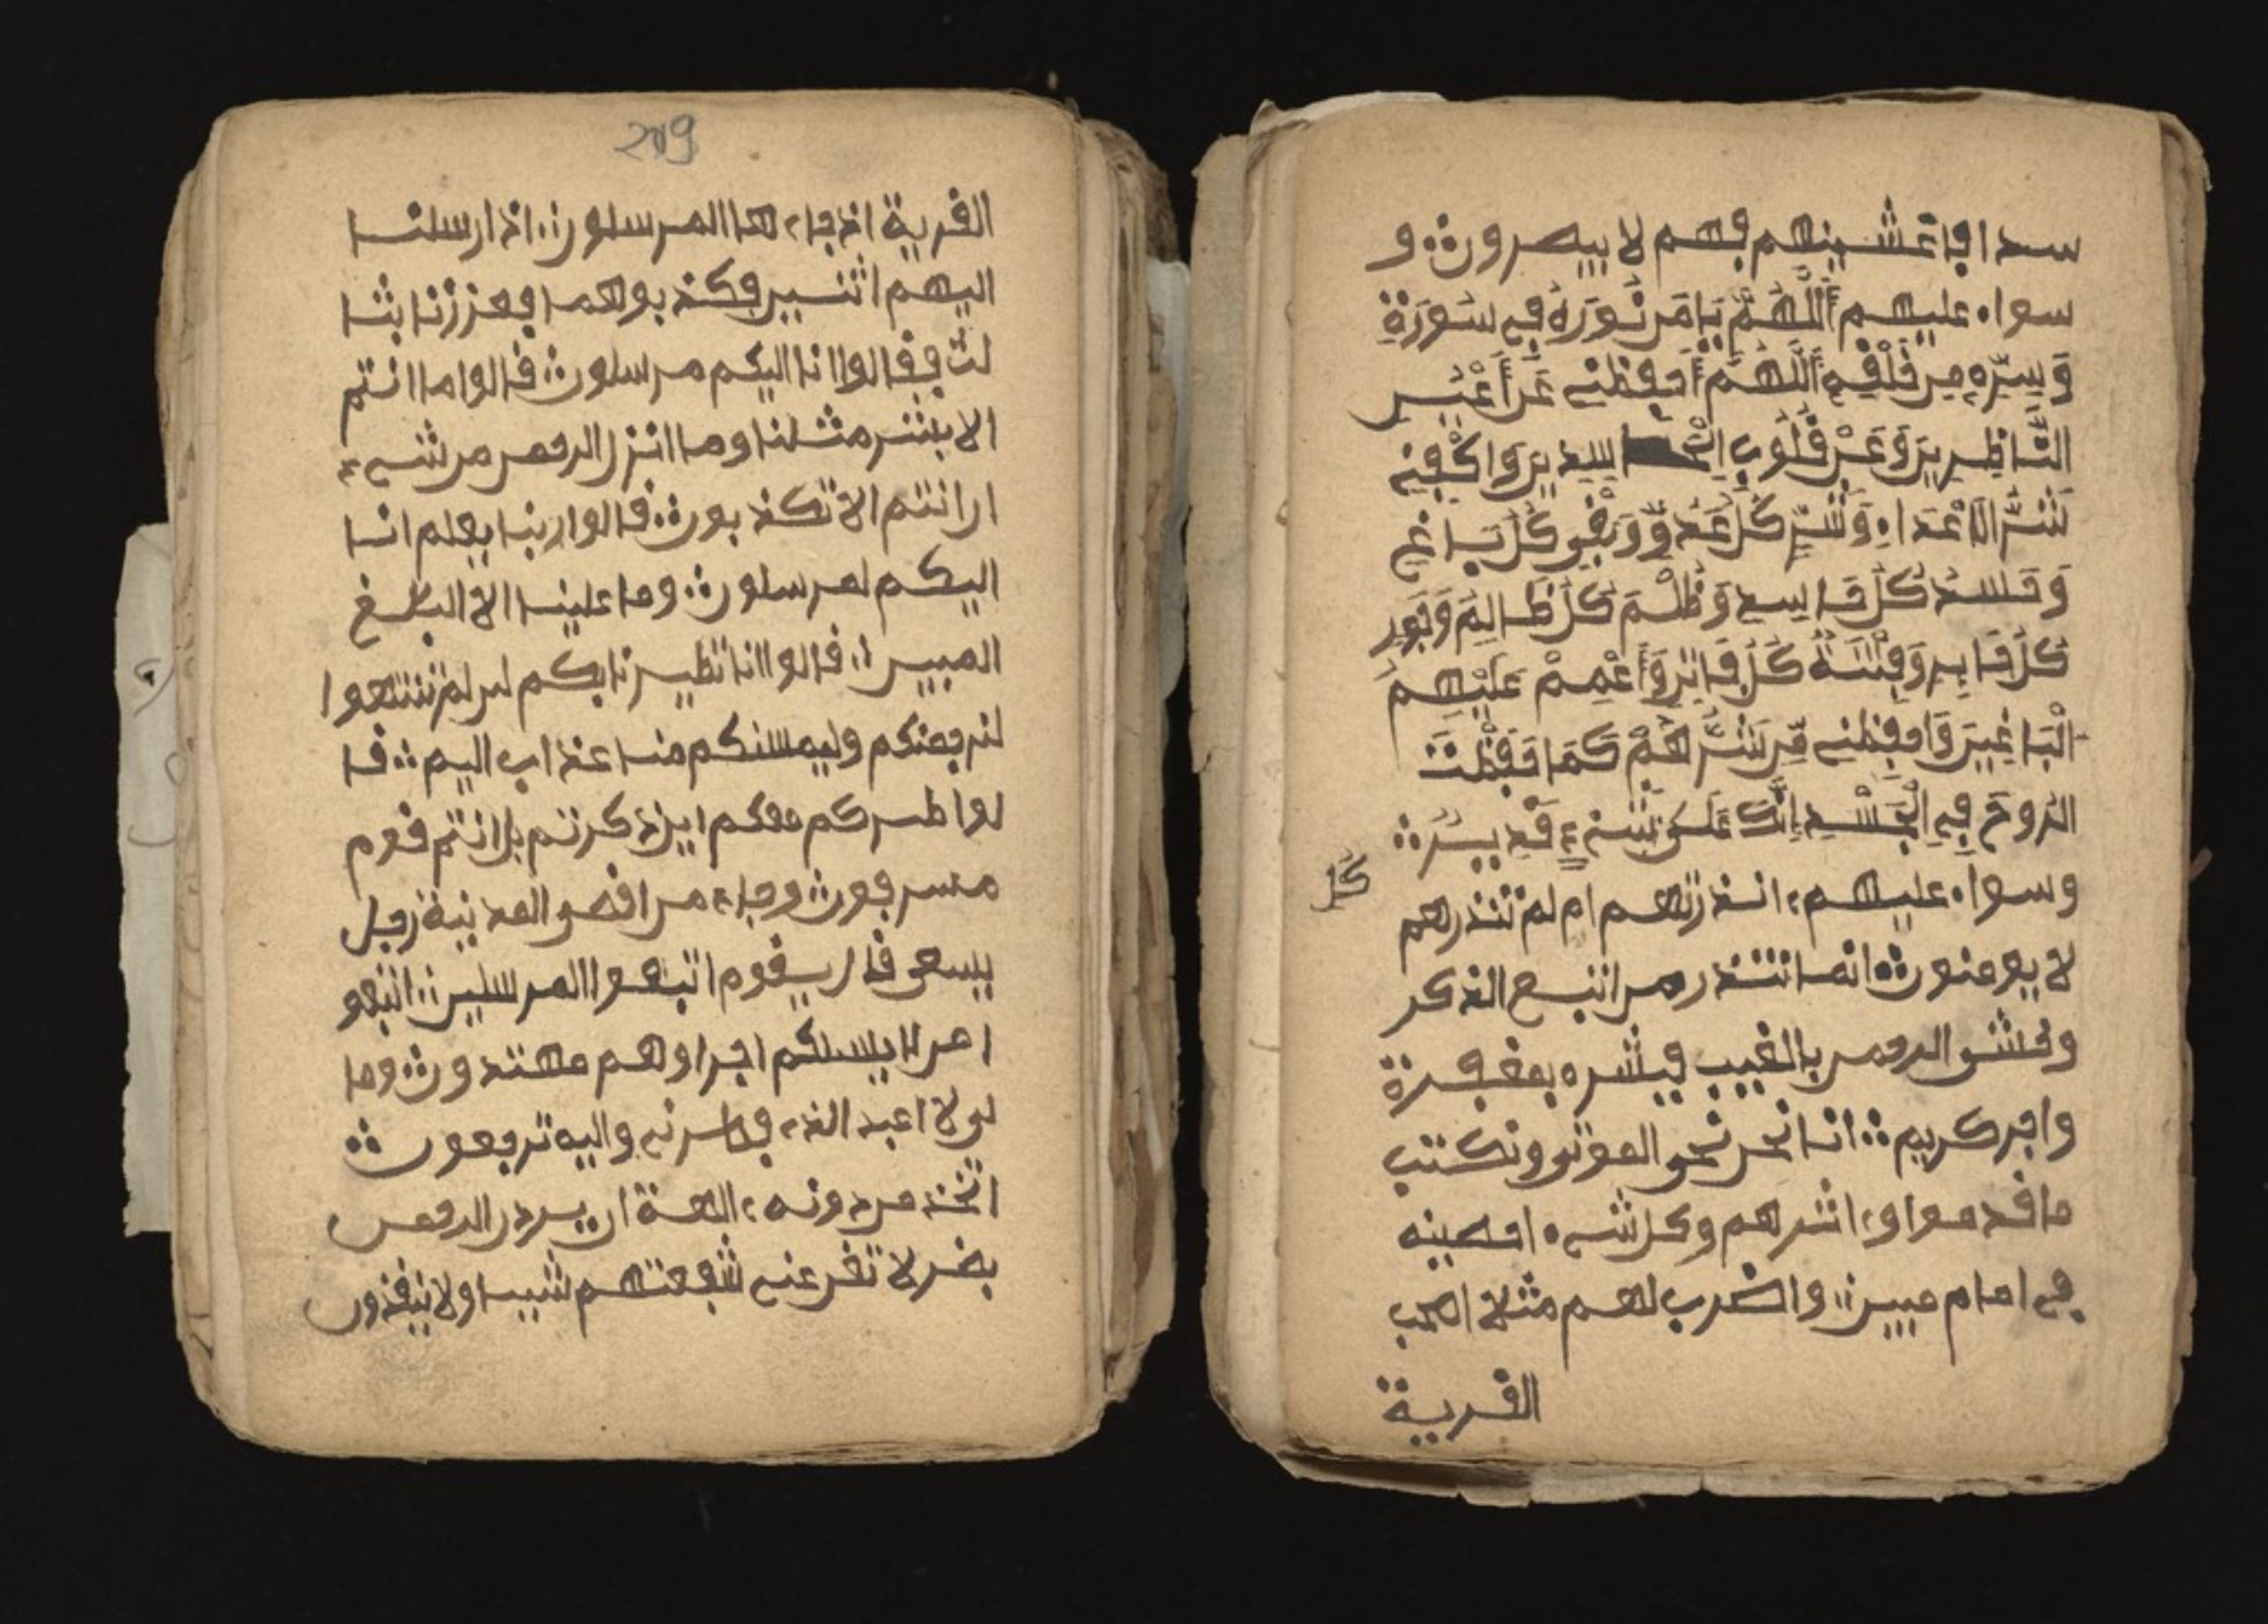 سدا فاغشينهم فهم لا يبصرون و
سواء عليهم أَللَّهُمَّ يَا مَن نُّورُهُ فِي سُورَةٍ
وَسِرُّهِ مِن خَلْقِهِ أَللَّهُمَّ أَحفِظنِي عَن أَعْيُنِ
النَّاظِرِينَ وَعَنْ قُلُوبِ الْحَاسِدِينَ وَاكْفِنِي
شَرَّ الَاعْدَاءِ وَشَرِّ كُلِّ عَدُوٍّ وَبَغْيِ كُلِّ بَاغٍ
وَحَسَدُ كُلِّ حَاسِدٍ وَظُلْمَ كُلِّ ظَالِمَ وَجَورِ
كُلِّ جَابِرٍ وَفِتْنَةُ كُلِّ فَاتِنٍ وَأَعْمِمْ عَلَيْهِم
الْبَاغِينَ وَاحفِظنِي مِّن شَرِّهُمْ كَمَا حَفِظْتَ
الرُّوحَ فِي الْجَسْدِ إِنَّكَ عَلَى شَيْءٍ قَدِيرٌ
كُلِّ
وسواء عليهم ءانذرتهم ام لم تنذرهم
لا يومنون انما تنذر من اتبع الذكر
وخشى الرحمن بالغيب فبشره بمغفرة
واجر كريم انا نحن نحى الموتى ونكتب
ما قدموا وءاثرهم وكل شىء احصينه
في امام مبين واضرب لهم مثلا اصحب
القرية
209
القرية اذ جاءها المرسلون اذ ارسلنا
اليهم اثنين فكذبوهما فعززنا بثا
لث فقالوا انا اليكم مرسلون قالوا ما انتم
الا بشر مثلنا وما انزل الرحمن من شىء
ان انتم الا تكذبون قالوا ربنا يعلم انا
اليكم لمرسلون وما علينا الا البلغ
المبين قالوا انا تطيرنا بكم لين لم تنتهوا
لنرجمنكم وليمسنكم منا عذاب اليم قا
لوا طيركم معكم اين ذكرتم بل انتم قوم
مسرفون وجاء من اقصى المدينة رجل
يسعى قال يقوم اتبعوا المرسلين اتبعو
ا من لا يسلكم اجرا وهم مهتدون وما
لى لا اعبد الذى فطرنى واليه ترجعون
ءاتخذ من دونه ءالهة ان يردن الرحمن
بضر لا تغن عني شفعتهم شيا ولا ينقذون